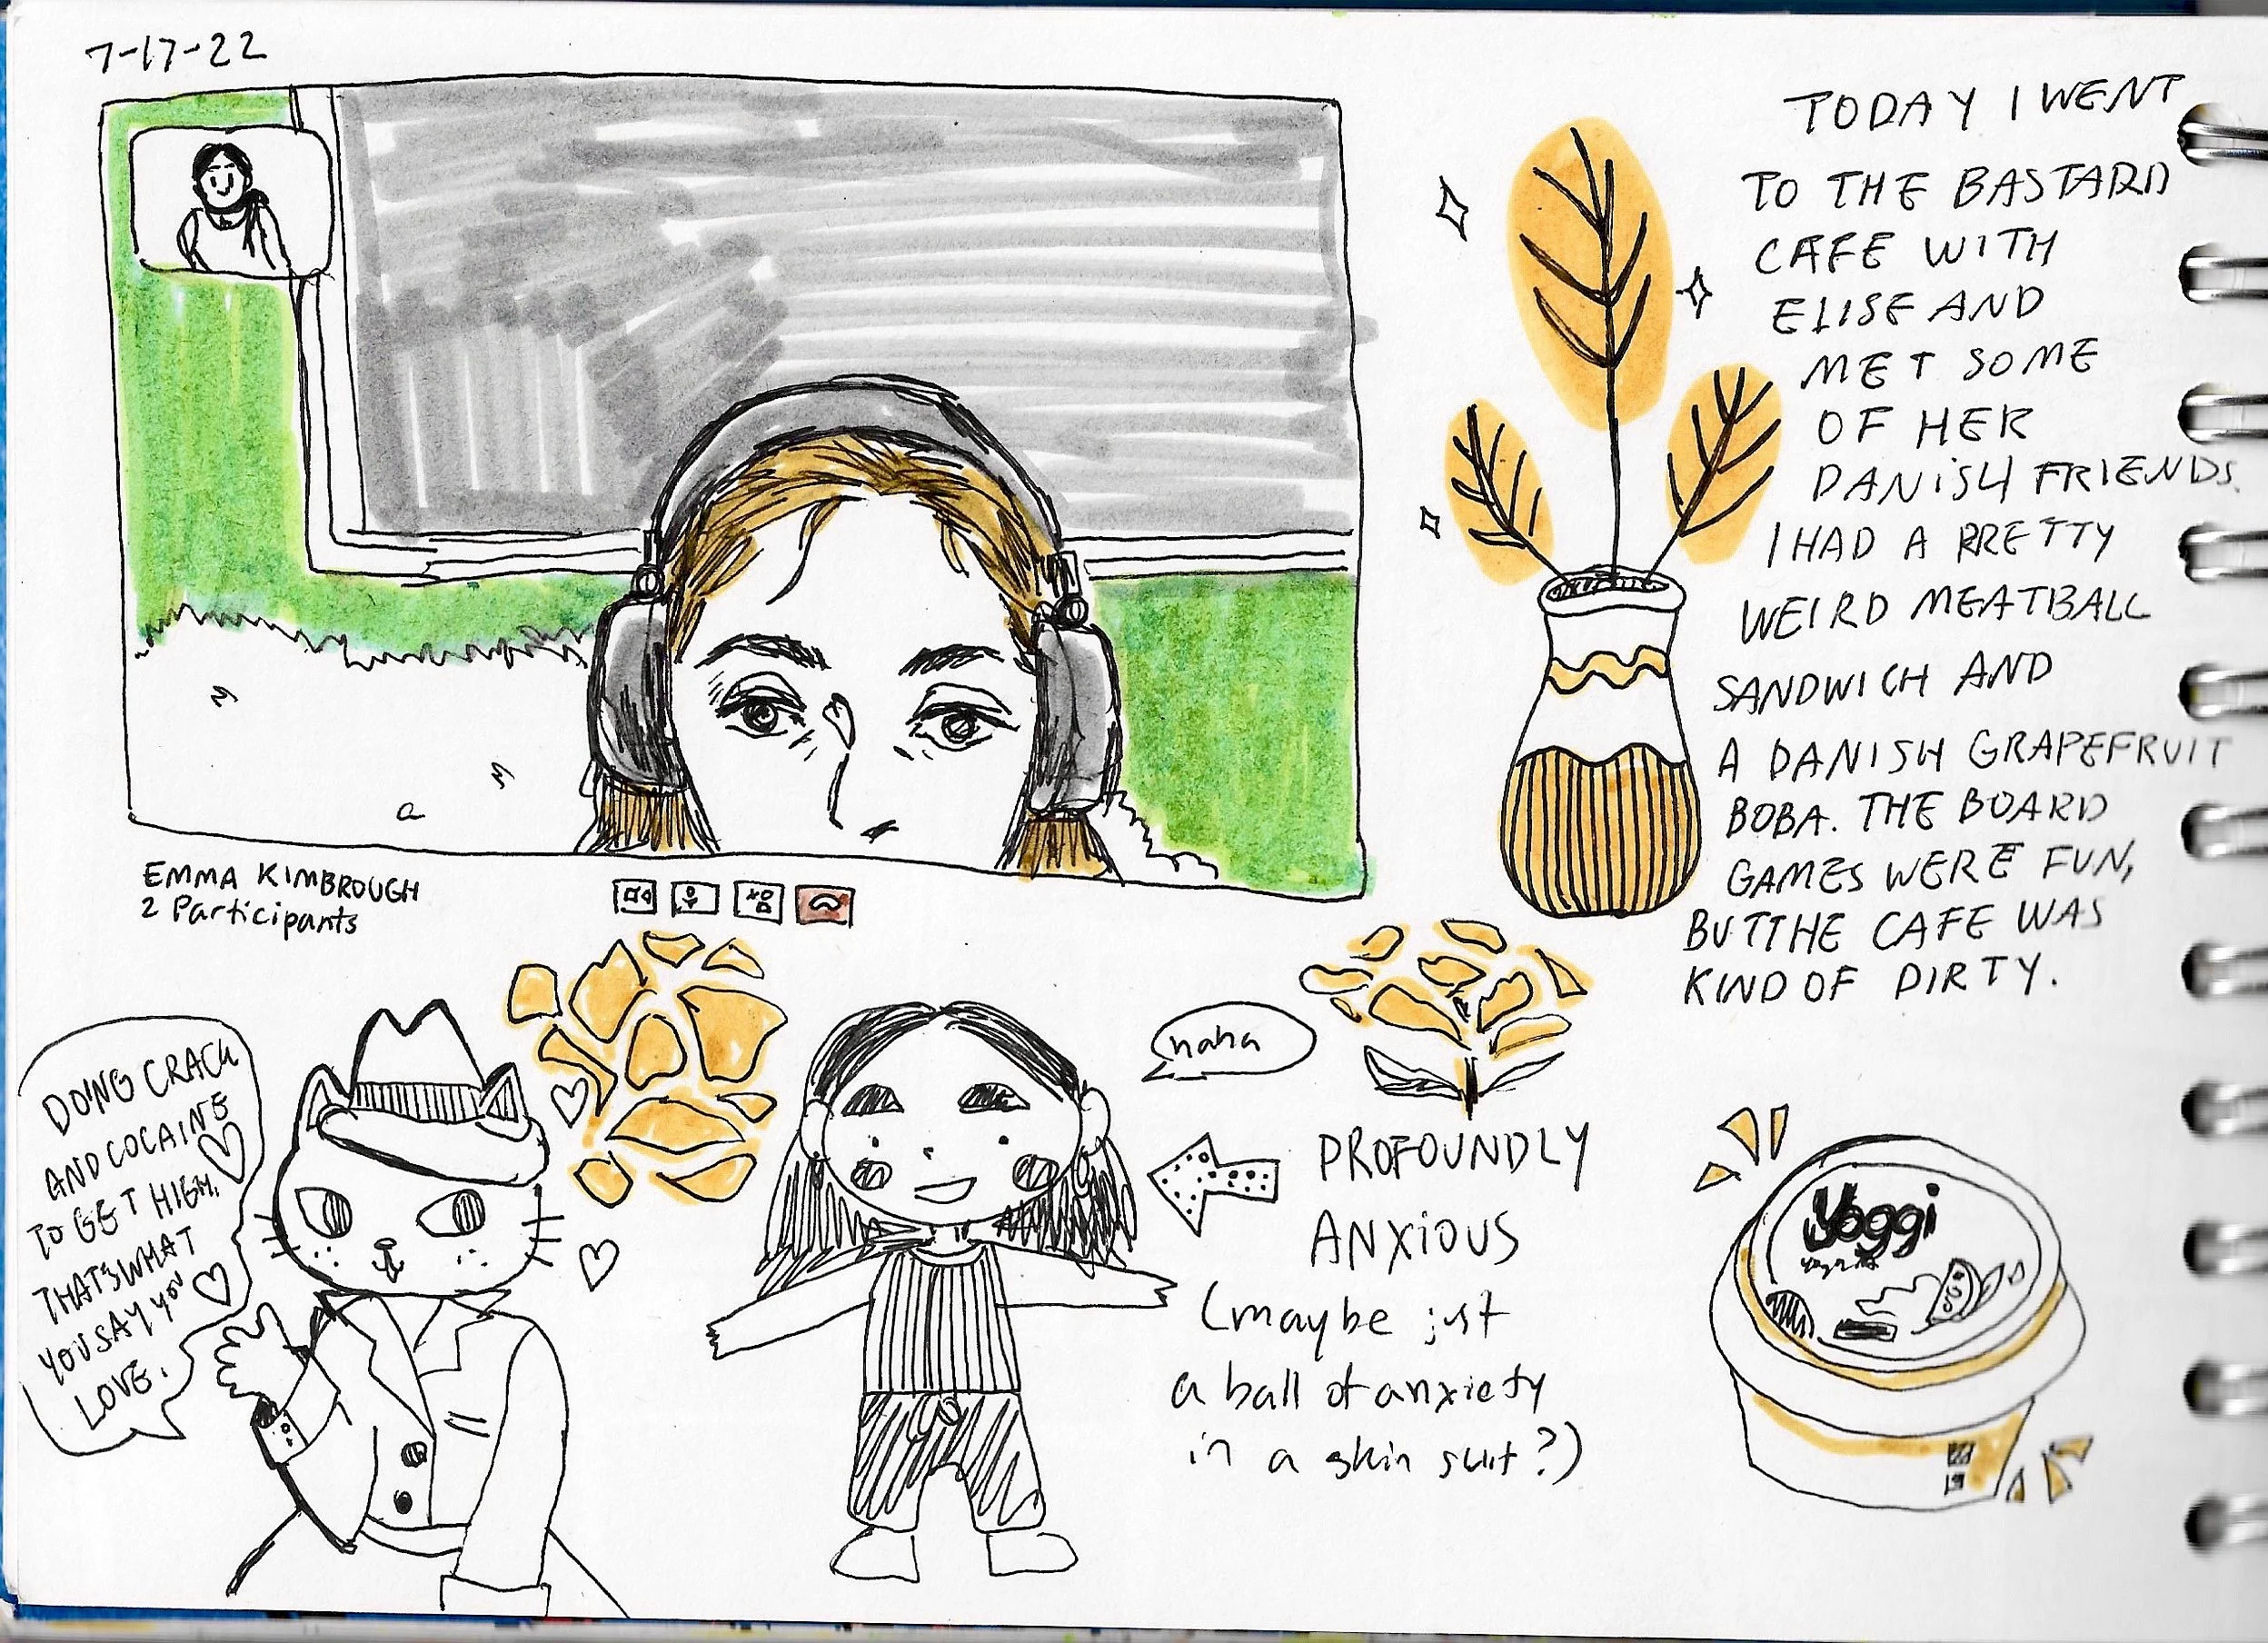 7-17-22
TODAY I WENT
TO THE BASTARD
CAFE WITH
ELISE AND
MET SOME
OF HER
DANISH FRIENDS.
I HAD A PRETTY
WEIRD MEATBALL
SANDWICH AND
A DANISH GRAPEFRUIT
BOBA. THE BOARD
GAMES WERE FUN,
BUT THE CAFE WAS
KIND OF DIRTY.
EMMA KIMBROUGH
2 Participants
DOING CRACK
AND COCAINE
TO GET HIGH,
THAT'S WHAT
YOU SAY YOU
LOVE.
haha
PROFOUNDLY
ANXIOUS
(maybe just
a ball of anxiety
in a skin suit?)
Yoggi